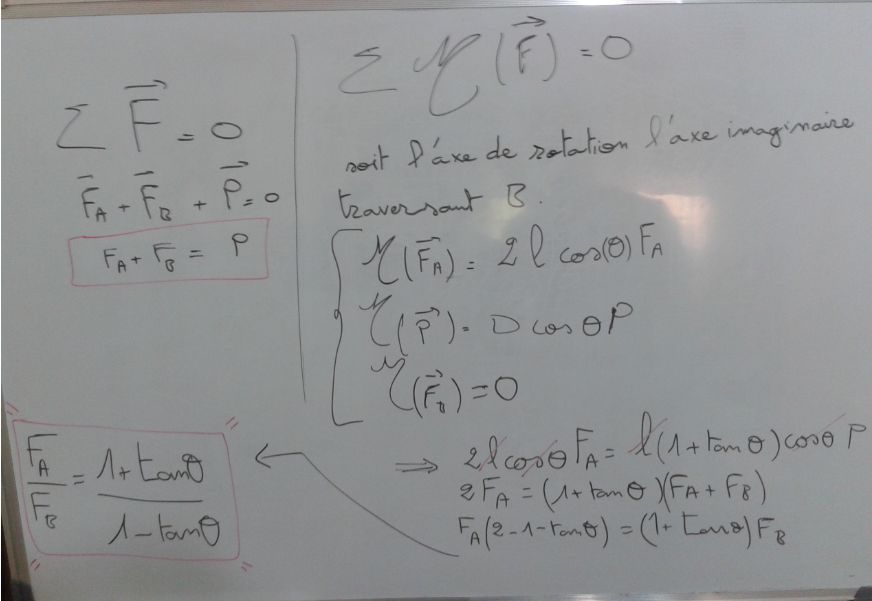 Σ F⃗ = 0
F̄_A + F̄_B + P⃗ = 0
F_A + F_B = P
F_A/F_B = (1 + tanθ)/(1 - tanθ)
Σ M(F⃗) = 0
soit l'axe de rotation l'axe imaginaire
traversant B.
M(F⃗_A) = 2l cos(θ) F_A
M(P⃗) = D cos θ P
M(F⃗_B) = 0
⇒ 2l cosθ F_A = l(1 + tanθ) cosθ P
2F_A = (1 + tanθ)(F_A + F_B)
F_A(2 - 1 - tanθ) = (1 + tanθ) F_B